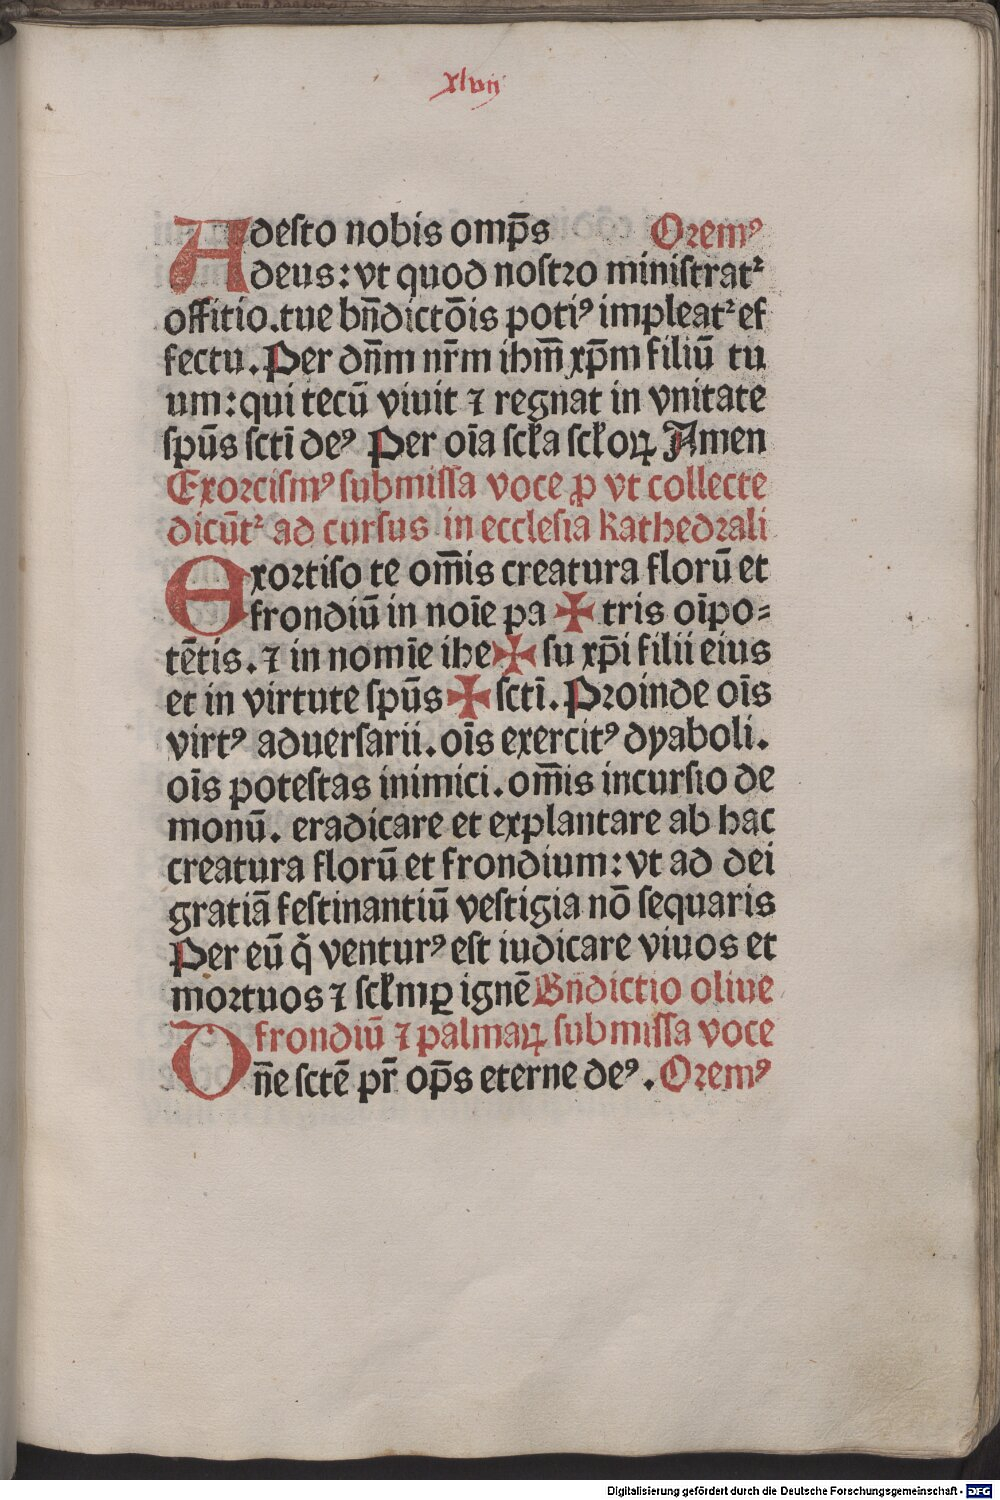 xlvij
Adesto nobis omp̄s Oremꝰ
deus: vt quod nostro ministratᷣ
offitio. tue bn̄dictōis potiꝰ impleatᷣ ef
fectu. Per dn̄m nr̄m ihm̄ xp̄m filiū tu
um: qui tecū viuit ⁊ regnat in vnitate
spūs sctī deꝰ Per oīa scƚa scƚoꝝ Amen
Exorcismꝰ submissa voce ꝓ vt collecte
dicūtᷣ ad cursus in ecclesia kathedrali
Exortiso te om̄is creatura florū et
frondiū in noīe pa ✠ tris oīpo-
tētis. ⁊ in nomīe ihe ✠ su xp̄i filii eius
et in virtute spūs ✠ sctī. Proinde oīs
virtꝰ aduersarii. oīs exercitꝰ dyaboli.
oīs potestas inimici. om̄is incursio de
monū. eradicare et explantare ab hac
creatura florū et frondium: vt ad dei
gratiā festinantiū vestigia nō sequaris
Per eū q̄ venturꝰ est iudicare viuos et
mortuos ⁊ scƚmꝑ ignē Bn̄dictio oliue
frondiū ⁊ palmaꝝ submissa voce
Dn̄e sctē pr̄ op̄s eterne deꝰ. Oremꝰ
Digitalisierung gefördert durch die Deutsche Forschungsgemeinschaft - DFG